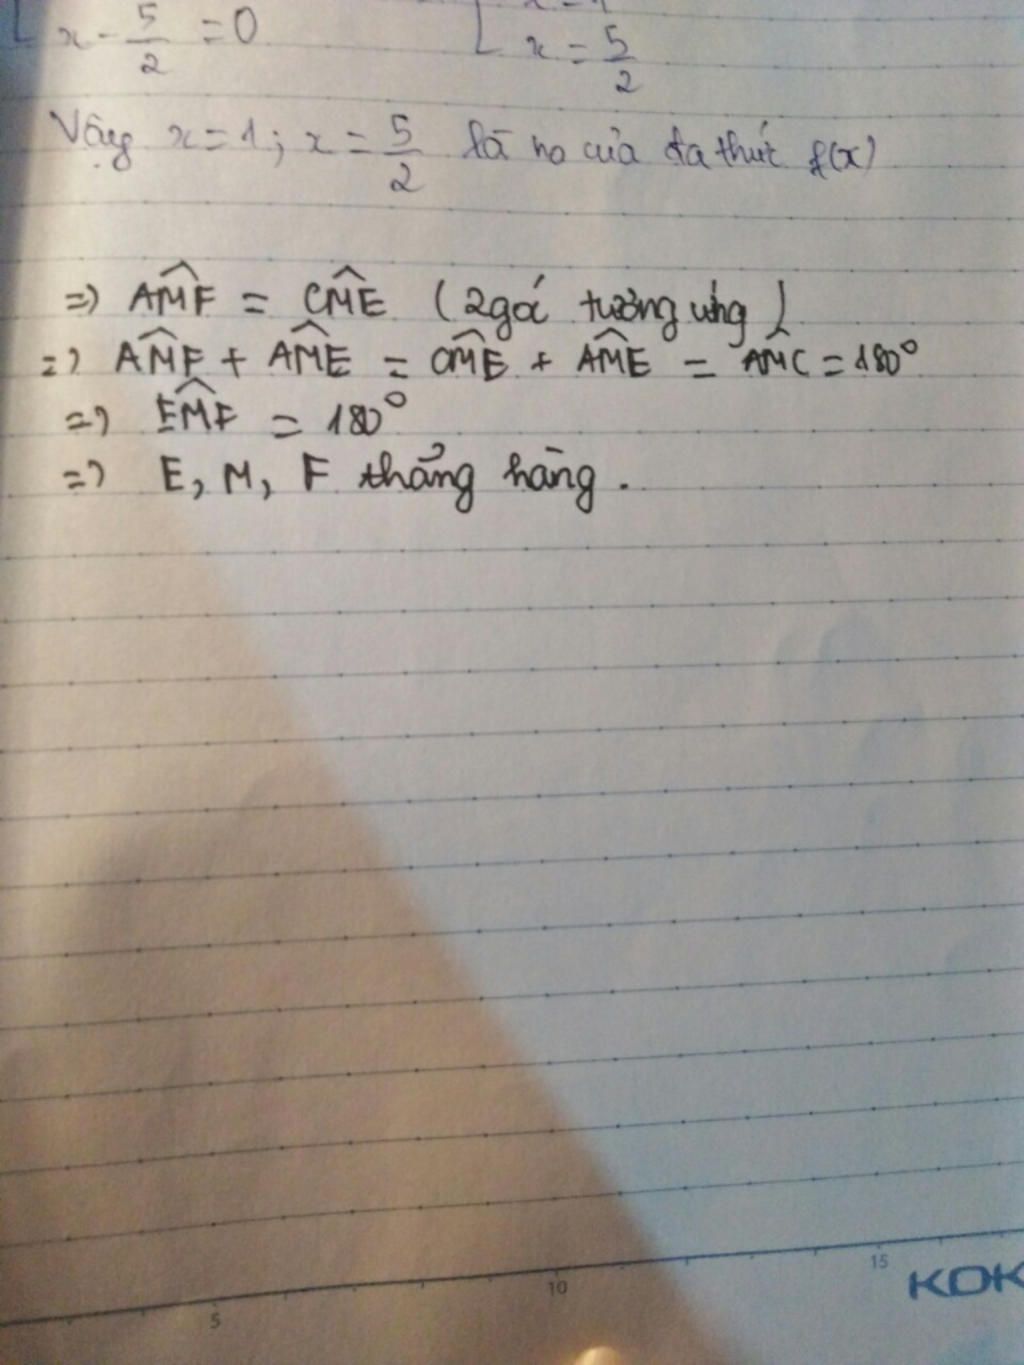 x - 5/2 = 0 x = 5/2
Vậy x = 1; x = 5/2 là no của đa thức f(x)
=> AMF = CME (2 gó tương ứng)
=> AMF + AME = CME + AME = AMC = 180°
=> EMF = 180°
=> E, M, F thẳng hàng.
5 10 15 KOK